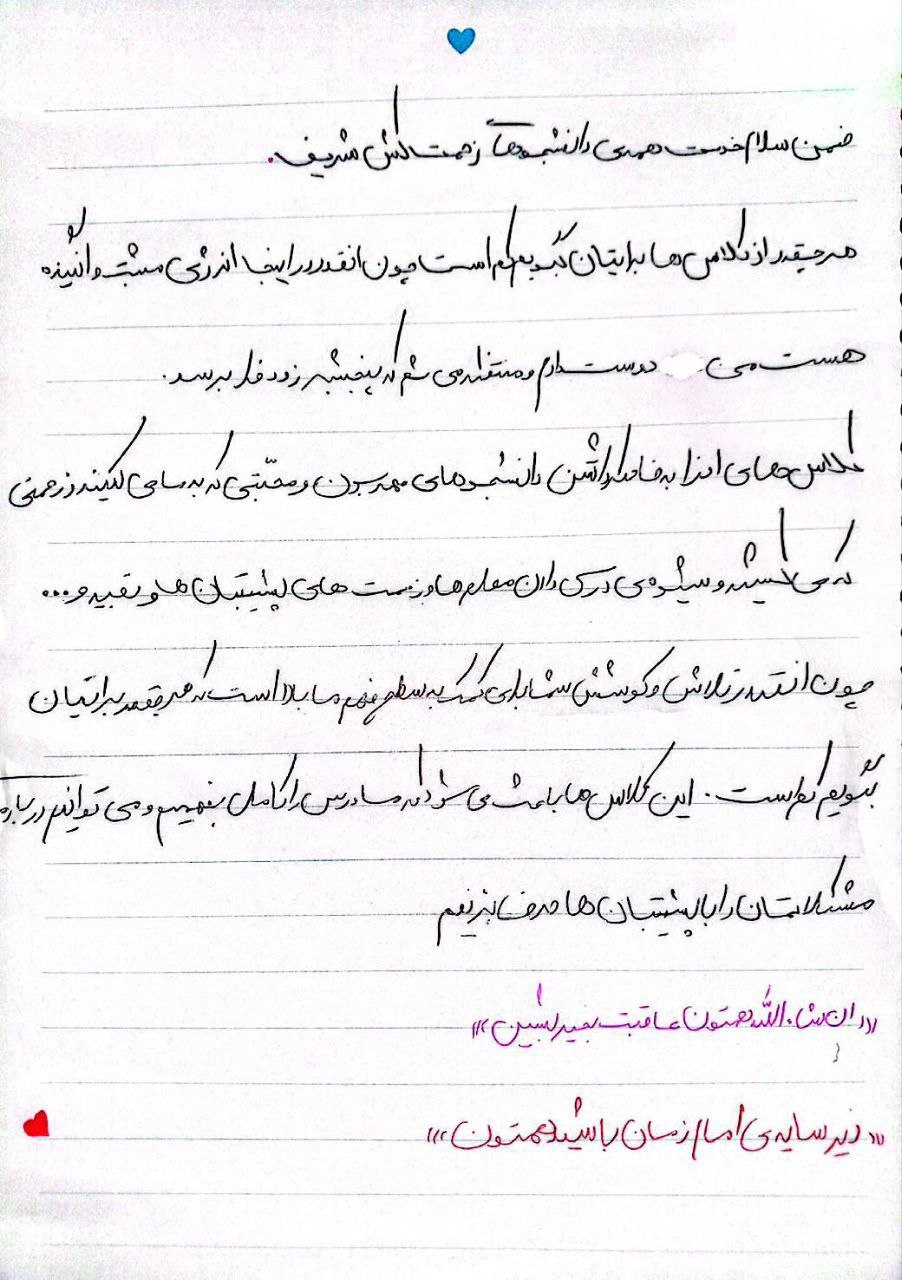 ضمن سلام خدمت همه‌ی دانشجوهای زحمت کش شریف.
هر چقدر از کلاس ها برایتان بگویم کم است چون انقدر در اینجا انرژی مثبت و انگیزه
هست من دوست دارم و منتظر می شم که پنجشنبه زود فرا برسد.
کلاس های را به خاطر داشتن دانشجوهای مهربون و محبتی که به ما می کنند و زحمتی
که می کشند و شیوه ی درس دادن معلم ها و زحمت های پشتیبان ها و بقیه و...
چون انقدر تلاش و کوشش شما برای کمک به سطح فهم ما بالا است که هر چقدر برایتان
بگویم کم است. این کلاس ها باعث می شود که ما درس را کامل بفهمیم و می توانیم درباره
مشکلاتمان را با پشتیبان ها حرف بزنیم
«ان شاءالله همتون عاقبت بخیر بشین»
«زیر سایه ی امام زمان باشید همتون»